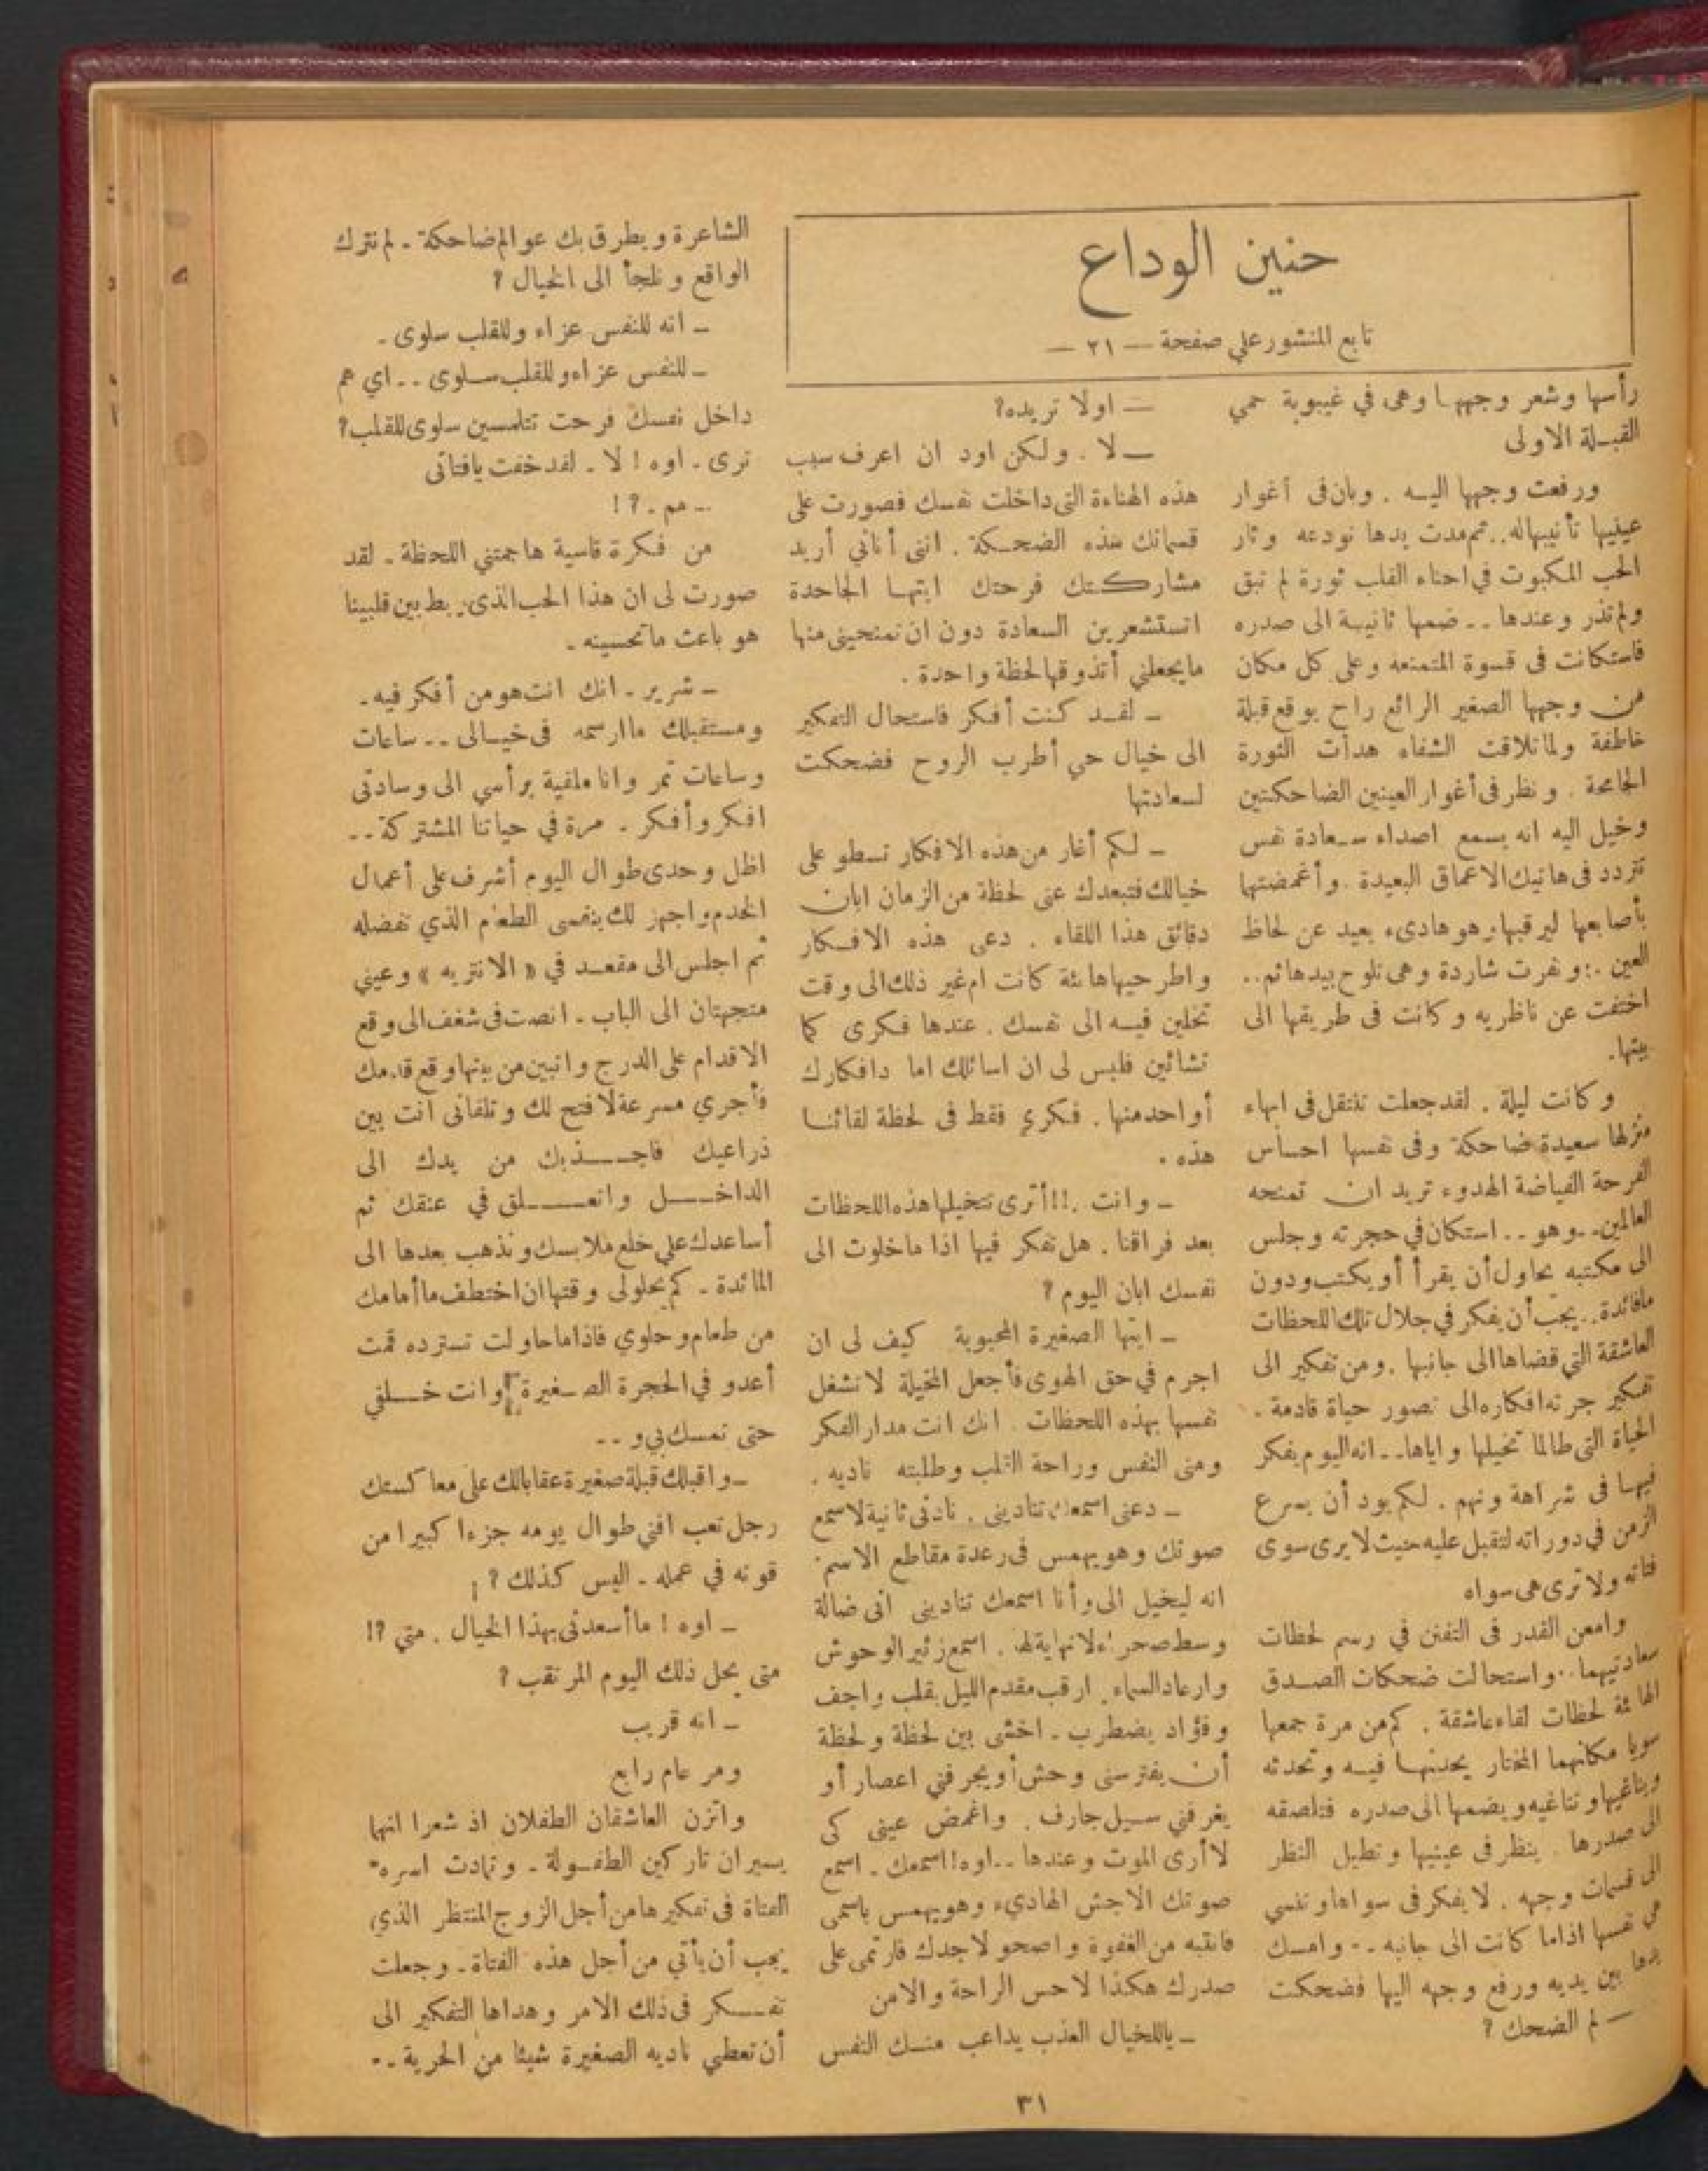 حنين الوداع
تابع المنشور علي صفحة — ٢١ —
رأسها وشعر وجهها وهى في غيبوبة حمي
القبلة الاولى
ورفعت وجهها اليه . وبان فى أغوار
عينيها تأنيبها له .. ثم مدت يدها تودعه وثار
الحب المكبوت في احناء القلب ثورة لم تبق
ولم تذر وعندها .. ضمها ثانية الى صدره
فاستكانت فى قسوة المتمنعه وعلى كل مكان
من وجهها الصغير الرائع راح يوقع قبلة
خاطفة ولما تلاقت الشفاه هدأت الثورة
الجامحة . ونظر فى أغوار العينين الضاحكتين
وخيل اليه انه يسمع اصداء سعادة نفس
تتردد فى هاتيك الاعماق البعيدة . وأغمضتها
بأصابعها ليرقبها وهو هادىء بعيد عن لحاظ
العين .. ونفرت شاردة وهى تلوح بيدها ثم ..
اختفت عن ناظريه وكانت فى طريقها الى
بيتها .
وكانت ليلة . لقد جعلت تنتقل فى ابهاء
منزلها سعيدة ضاحكة وفى نفسها احساس
الفرحة الفياضة الهدوء تريد ان تمنحه
العالمين .. وهو .. استكان في حجرته وجلس
الى مكتبه يحاول أن يقرأ أو يكتب ودون
مافائدة .. يجب أن يفكر في جلال تلك اللحظات
العاشقة التي قضاها الى جانبها . ومن تفكير الى
تفكير جرته افكاره الى تصور حياة قادمة .
الحياة التى طالما تخيلها واياها .. انه اليوم يفكر
فيها فى شراهة ونهم . لكم يود أن يسرع
الزمن في دورانه لتقبل عليه حيث لا يرى سوى
فتاته ولا ترى هى سواه
وامعن القدر فى التفنن في رسم لحظات
سعادتيهما .. واستحالت ضحكات الصدق
الهائة لحظات لقاء عاشقة . كم من مرة جمعها
سويا مكانهما المختار يحدثها فيه وتحدثه
ويناغيها وتناغيه ويضمها الى صدره فتلصقه
الى صدرها . ينظر فى عينيها وتطيل النظر
الى قسمات وجهه . لا يفكر فى سواها وتنسي
من نفسها اذاما كانت الى جانبه .. وامسك
يدها بين يديه ورفع وجهه اليها فضحكت
— لم الضحك ؟
— اولا تريده؟
— لا . ولكن اود ان اعرف سبب
هذه الهناءة التى داخلت نفسك فصورت على
قسماتك هذه الضحكة . اننى أناني أريد
مشاركتك فرحتك ايتها الجاحدة
اتستشعرين السعادة دون ان تمنحينى منها
مايجعلني أتذوقها لحظة واحدة .
ـ لقد كنت أفكر فاستحال التفكير
الى خيال حي أطرب الروح فضحكت
لسعادتها
ـ لكم أغار من هذه الافكار تسطو على
خيالك فتبعدك عنى لحظة من الزمان ابان
دقائق هذا اللقاء . دعى هذه الافكار
واطرحيها هائة كانت ام غير ذلك الى وقت
تخلين فيه الى نفسك . عندها فكرى كما
تشائين فليس لى ان اسائلك اما دافكارك
أو احد منها . فكري فقط فى لحظة لقائنا
هذه .
ـ وانت .!! أترى تتخيلها هذه اللحظات
بعد فراقنا . هل تفكر فيها اذا ماخلوت الى
نفسك ابان اليوم ؟
ـ ايتها الصغيرة المحبوبة كيف لى ان
اجرم في حق الهوى فأجعل المخيلة لا تشغل
نفسها بهذه اللحظات . انك انت مدار الفكر
ومنى النفس وراحة القلب وطلبته ناديه .
ـ دعنى اسمعك تنادينى . نادنى ثانية لاسمع
صوتك وهو يهمس فى رعدة مقاطع الاسم
انه ليخيل الى وأنا اسمعك تنادينى انى ضالة
وسط صحراء لا نهاية لها . اسمع زئير الوحوش
وارعاد السماء . ارقب مقدم الليل بقلب واجف
وفؤاد يضطرب . اخشى بين لحظة ولحظة
أن يفترسنى وحش أو يجرفني اعصار أو
يغرفني سيل جارف . واغمض عينى كى
لا أرى الموت وعندها .. اوه ! اسمعك . اسمع
صوتك الاجش الهادىء وهو يهمس باسمى
فانتبه من الغفوة واصحو لاجدك فارتمى على
صدرك هكذا لاحس الراحة والامن
ـ ياللخيال العذب يداعب منك النفس
الشاعرة ويطرق بك عوالم ضاحكة . لم نترك
الواقع ونلجأ الى الخيال ؟
ـ انه للنفس عزاء وللقلب سلوى .
ـ للنفس عزاء وللقلب سلوى .. اي هم
داخل نفسك فرحت تتلمسين سلوى للقلب؟
ترى . اوه ! لا . لقد خفت يافتاتى
ـ هم .؟ !
من فكرة قاسية هاجمتني اللحظة . لقد
صورت لى ان هذا الحب الذى يربط بين قلبينا
هو باعث ماتحسينه .
ـ شرير . انك انت هو من أفكر فيه .
ومستقبلك ماارسمه فى خيالى .. ساعات
وساعات تمر وانا ملقية برأسي الى وسادتى
افكر وأفكر . مرة في حياتنا المشتركة ..
اظل وحدى طوال اليوم أشرف على أعمال
الخدم واجهز لك بنفسى الطعام الذي تفضله
ثم اجلس الى مقعد في « الانتريه » وعيني
متجهتان الى الباب . انصت فى شغف الى وقع
الاقدام على الدرج واتبين من بينها وقع قدمك
فأجري مسرعة لافتح لك وتلقانى انت بين
ذراعيك فاجذبك من يدك الى
الداخل واتعلق في عنقك ثم
أساعدك علي خلع ملابسك ونذهب بعدها الى
المائدة . كم يحلولى وقتها ان اختطف ماأمامك
من طعام وحلوي فاذا ماحاولت تسترده قمت
أعدو في الحجرة الصغيرة وانت خلفي
حتى تمسك بي و ..
ـ واقبلك قبلة صغيرة عقابالك على معاكستك
رجل تعب افنى طوال يومه جزءا كبيرا من
قوته في عمله . اليس كذلك ؟ !
ـ اوه ! ماأسعدنى بهذا الخيال . متي ؟!
متى يحل ذلك اليوم المرتقب ؟
ـ انه قريب
ومر عام رابع
واتزن العاشقان الطفلان اذ شعرا انهما
يسيران تاركين الطفولة . وتمادت اسرة
الفتاة فى تفكيرها من أجل الزوج المنتظر الذي
يجب أن يأتي من أجل هذه الفتاة . وجعلت
تفكر فى ذلك الامر وهداها التفكير الى
أن تعطي ناديه الصغيرة شيئا من الحرية ..
٣١